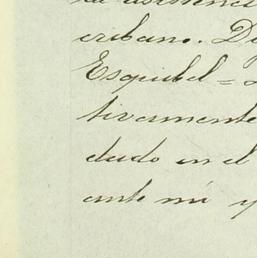 cribano. D
Esquibel =
tivamente
dado en el
ante mí y